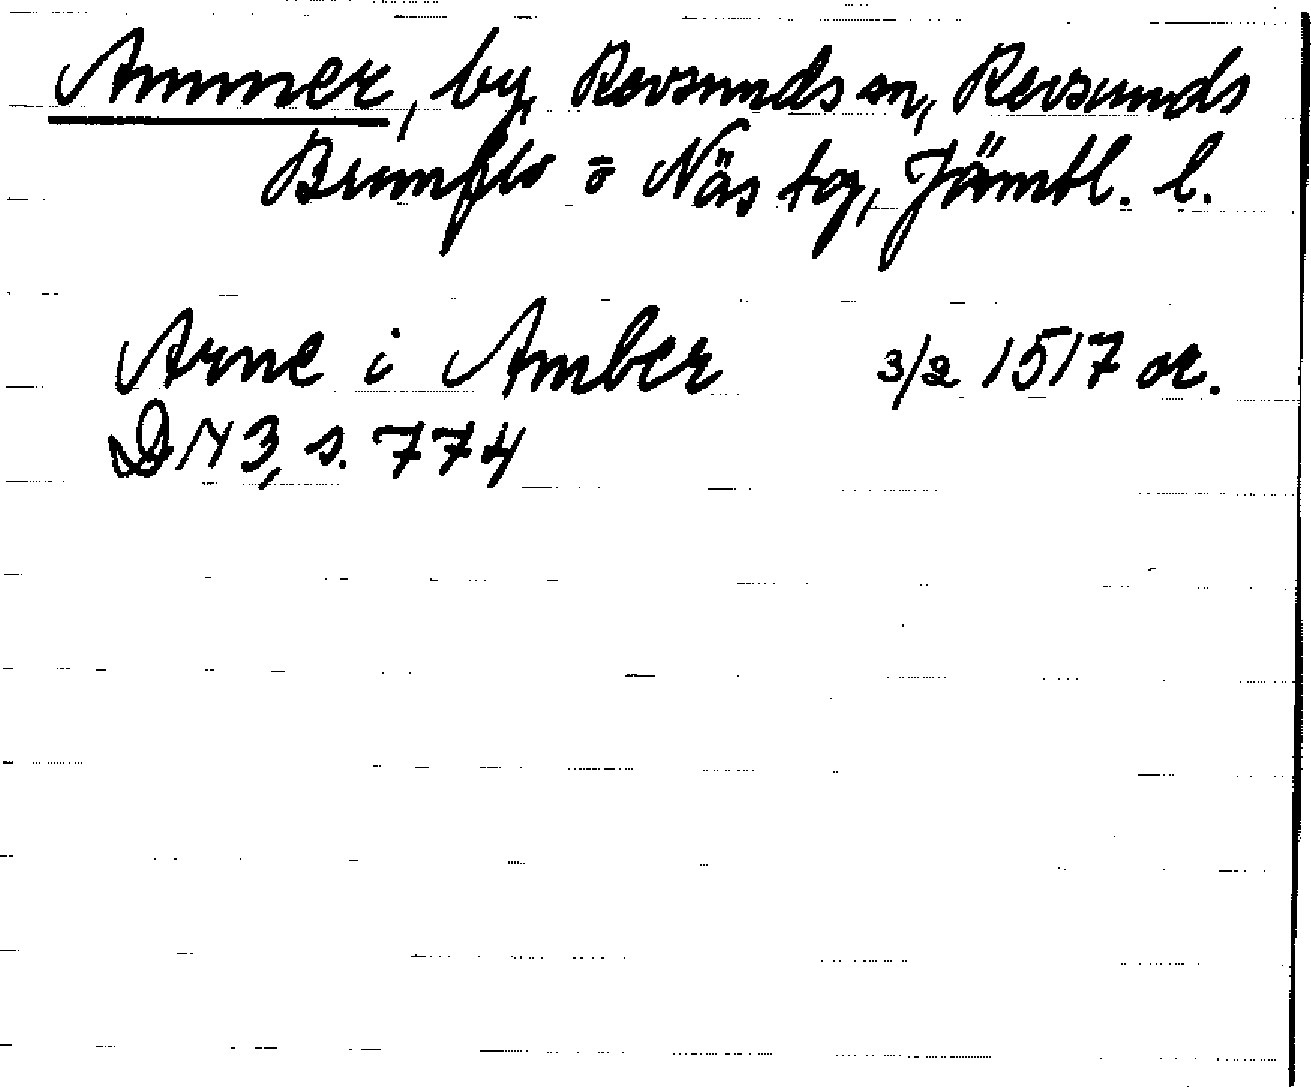 Ammer, by, Revsunds sn, Revsunds
Brunflo o Näs tg, Jämtl. l.
Arne i Amber 3/2 1517 or.
DN 3, s. 774